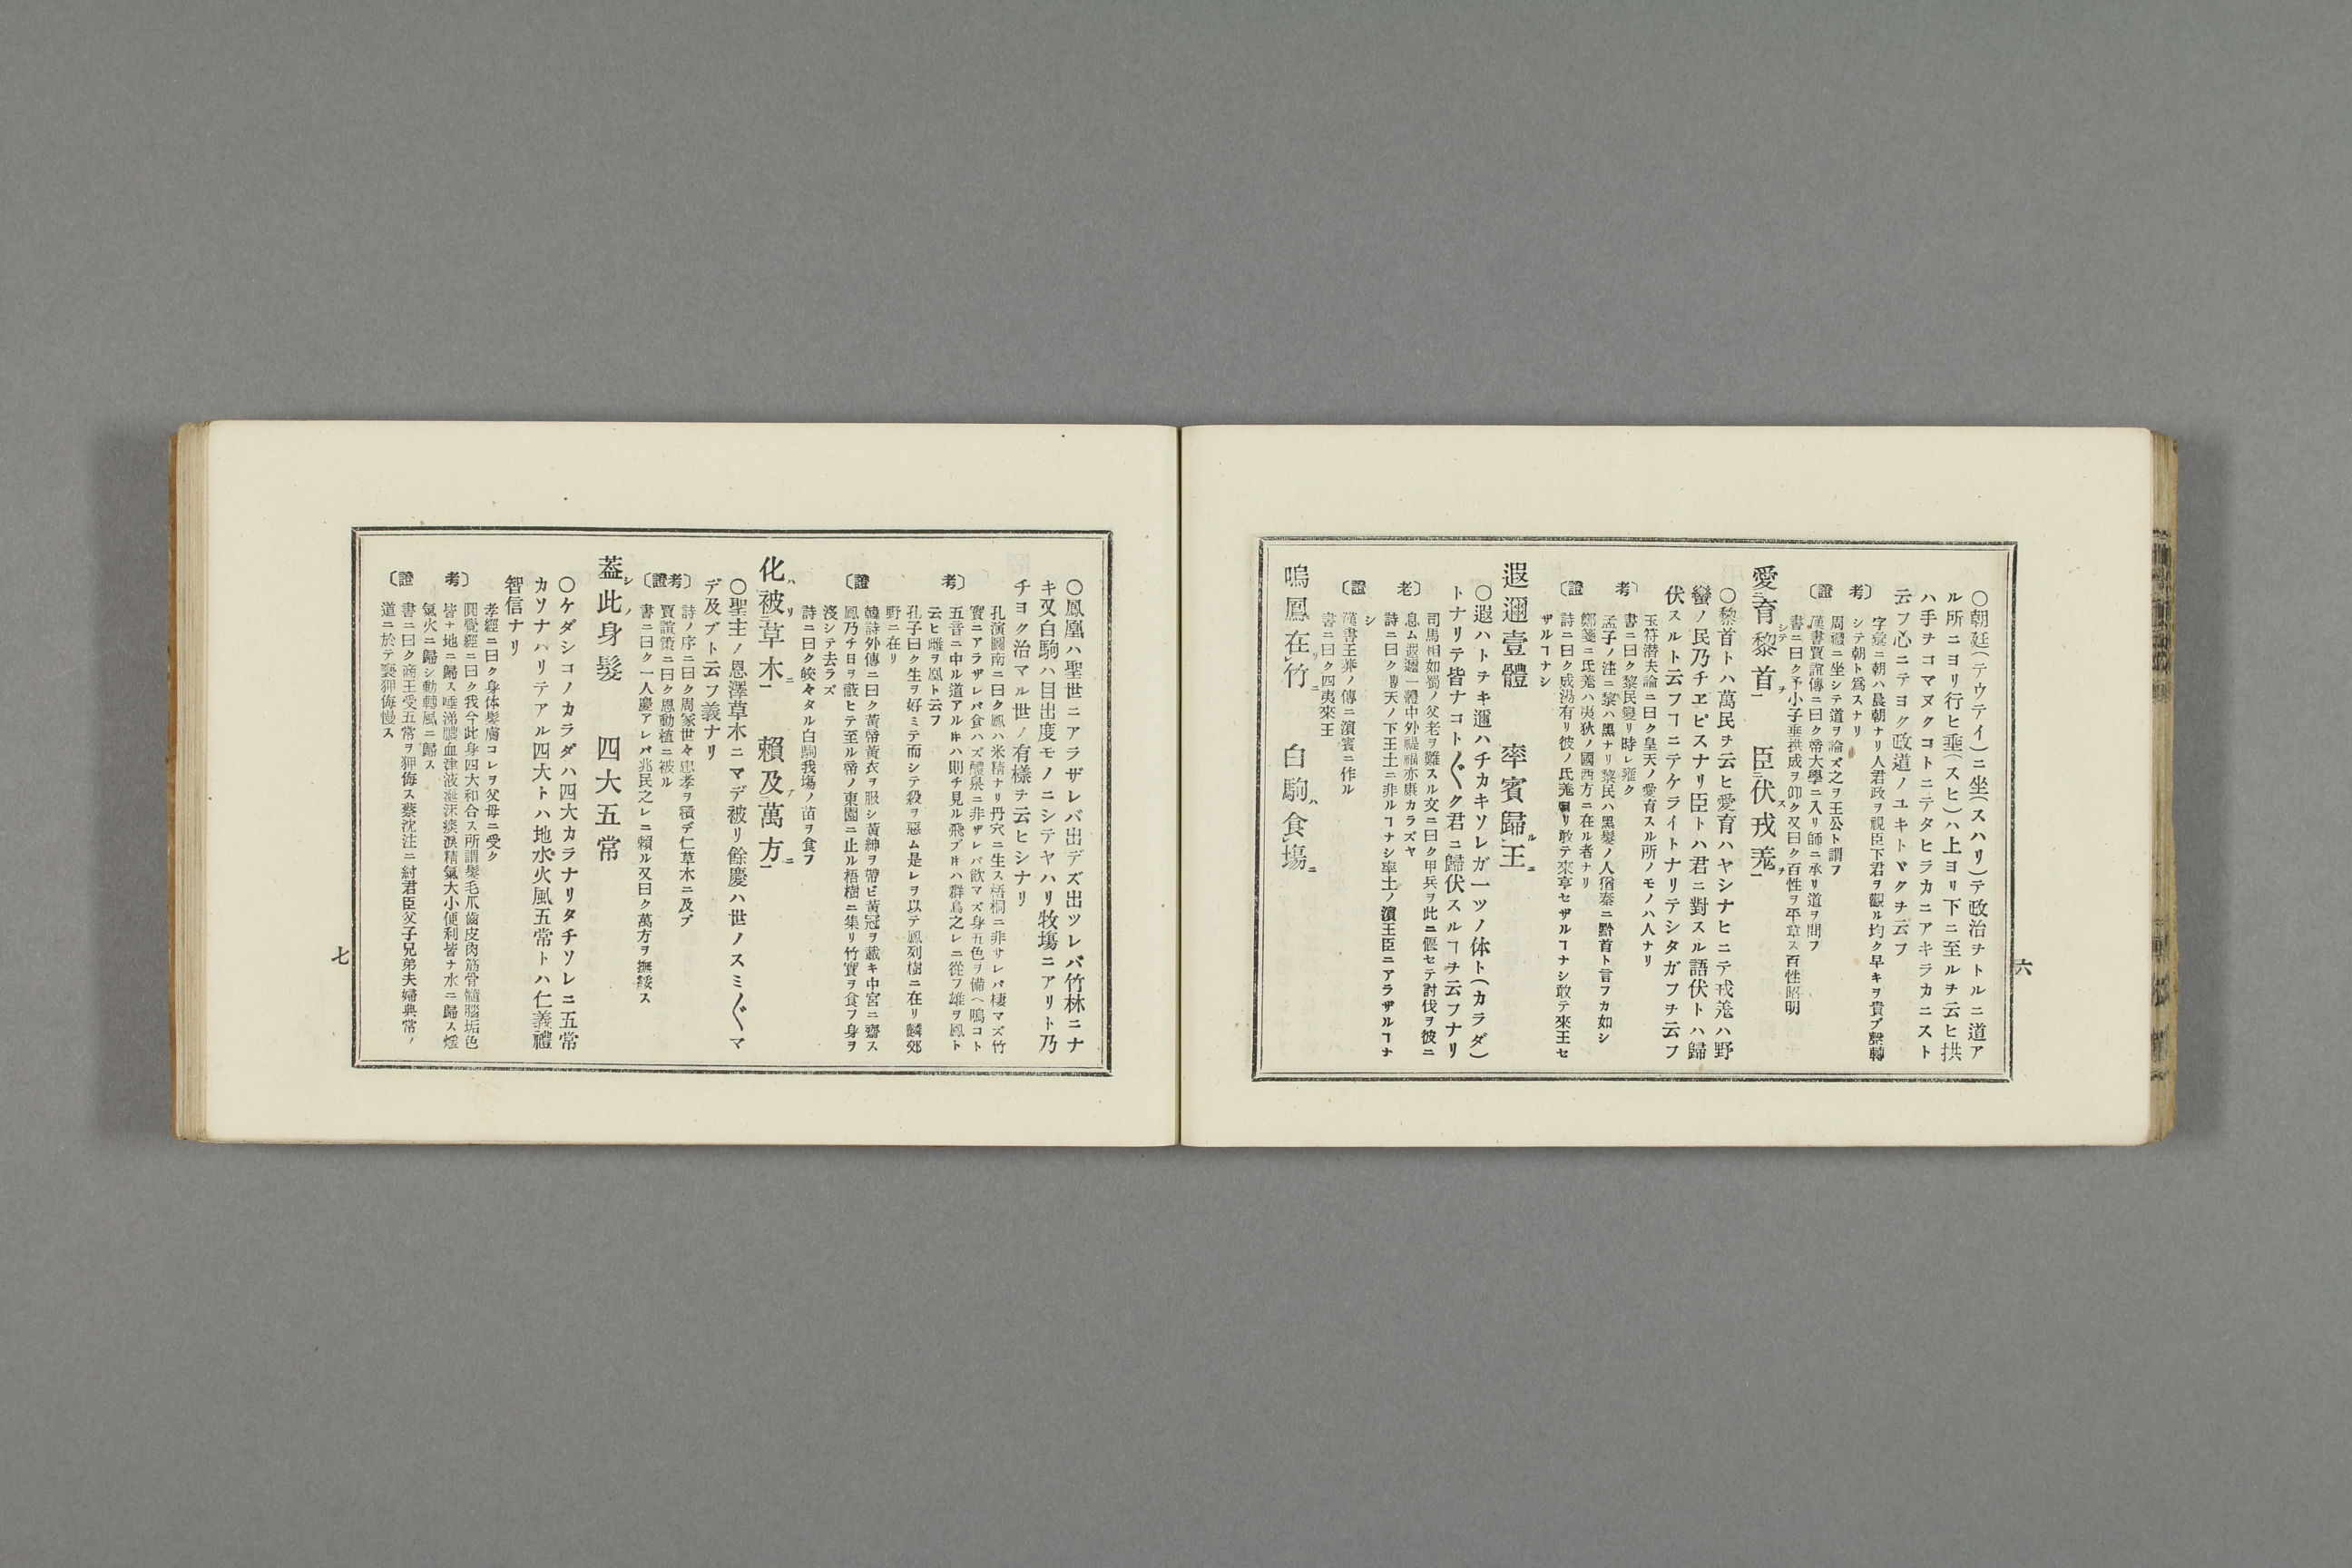 〇朝廷(テウテイ)ニ坐(スハリ)テ政治ヲトルニ道ア
ル所ニヨリ行ヒ垂(スヒ)ハ上ヨリ下ニ至ルヲ云ヒ拱
ハ手ヲコマヌクコトニテタヒラカニアキラカニスト
云フ心ニテヨク政道ノユキトヾクヲ云フ
考〕
字彙ニ朝ハ晨朝ナリ人君政ヲ視臣下君ヲ觀ル均ク早キヲ貴ブ
シテ朝ト爲スナリ
周禮ニ坐シテ道ヲ論ズ之ヲ王公ト謂フ
〔證
漢書賈誼傳ニ曰ク帝大學ニ入リ師ニ承リ道ヲ問フ
書ニ曰ク予小子垂拱成ヲ仰ク又曰ク百姓ヲ平章ス百姓昭明
愛育黎首 臣伏戎羌
〇黎首トハ萬民ヲ云ヒ愛育ハヤシナヒニテ戎羌ハ野
蠻ノ民乃チヱビスナリ臣トハ君ニ對スル語伏トハ歸
伏スルト云フヿニテケライトナリテシタガフヲ云フ
玉符潜夫論ニ曰ク皇天ノ愛育スル所ノモノハ人ナリ
書ニ曰ク黎民變リ時レ雍ク
考〕
孟子ノ注ニ黎ハ黑ナリ黎民ハ黑髮ノ人猶秦ニ黔首ト言フカ如シ
鄭箋ニ氐羌ハ夷狄ノ國西方ニ在ル者ナリ
〔證
詩ニ曰ク成湯有リ彼ノ氐羌ヨリ敢テ來享セザルヿナシ敢テ來王セ
ザルヿナシ
遐邇壹體 率賓歸王
〇遐ハトヲキ邇ハチカキソレガ一ツノ体ト(カラダ)
トナリテ皆ナコト〲ク君ニ歸伏スルヿヲ云フナリ
司馬相如蜀ノ父老ヲ難スル文ニ曰ク甲兵ヲ此ニ偃セテ討伐ヲ彼ニ
老〕
息ム遐邇一體中外禔福亦康カラズヤ
詩ニ曰ク溥天ノ下王土ニ非ルヿナシ率土ノ濱王臣ニアラザルヿナ
シ
〔證
漢書王莽ノ傳ニ濱賓ニ作ル
書ニ曰ク四夷來王
鳴鳳在竹 白駒食塲
六
〇鳳凰ハ聖世ニアラザレバ出デズ出ツレバ竹林ニナ
キ又白駒ハ目出度モノニシテヤハリ牧塲ニアリト乃
チヨク治マル世ノ有樣ヲ云ヒシナリ
孔演圖南ニ曰ク鳳ハ米精ナリ丹穴ニ生ス梧桐ニ非サレバ棲マズ竹
實ニアラザレバ食ハズ醴泉ニ非ザレバ飮マズ身五色ヲ備ヘ鳴コト
考〕
五音ニ中ル道アル𪜈ハ則チ見ル飛ブ𪜈ハ群鳥之レニ從フ雄ヲ鳳ト
云ヒ雌ヲ凰ト云フ
孔子曰ク生ヲ好ミテ而シテ殺ヲ惡ム是レヲ以テ鳳列樹ニ在リ麟郊
野ニ在リ
韓詩外傳ニ曰ク黃帝黃衣ヲ服シ黃紳ヲ帶ビ黃冠ヲ戴キ中宮ニ齋ス
〔證
鳳乃チ日ヲ蔽ヒテ至ル帝ノ東園ニ止ル梧樹ニ集リ竹實ヲ食フ身ヲ
沒シテ去ラズ
詩ニ曰ク皎々タル白駒我塲ノ苗ヲ食フ
化被草木 賴及萬方
〇聖主ノ恩澤草木ニマデ被リ餘慶ハ世ノスミ〲マ
デ及ブト云フ義ナリ
〔證考〕
詩ノ序ニ曰ク周家世々忠孝ヲ積デ仁草木ニ及ブ
賈誼策ニ曰ク恩動植ニ被ル
書ニ曰ク一人慶アレバ兆民之レニ賴ル又曰ク萬方ヲ撫綏ス
蓋此身髮 四大五常
〇ケダシコノカラダハ四大カラナリタチソレニ五常
カソナハリテアル四大トハ地水火風五常トハ仁義禮
智信ナリ
孝經ニ曰ク身体髮膚コレヲ父母ニ受ク
考〕
圓覺經ニ曰ク我今此身四大和合ス所謂髮毛爪齒皮肉筋骨髓腦垢色
皆ナ地ニ歸ス唾涕膿血津液涎沫痰淚精氣大小便利皆ナ水ニ歸ス煖
氣火ニ歸シ動轉風ニ歸ス
〔證
書ニ曰ク商王受五常ヲ狎侮ス蔡沈注ニ紂君臣父子兄弟夫婦典常ノ
道ニ於テ褻狎侮慢ス
七